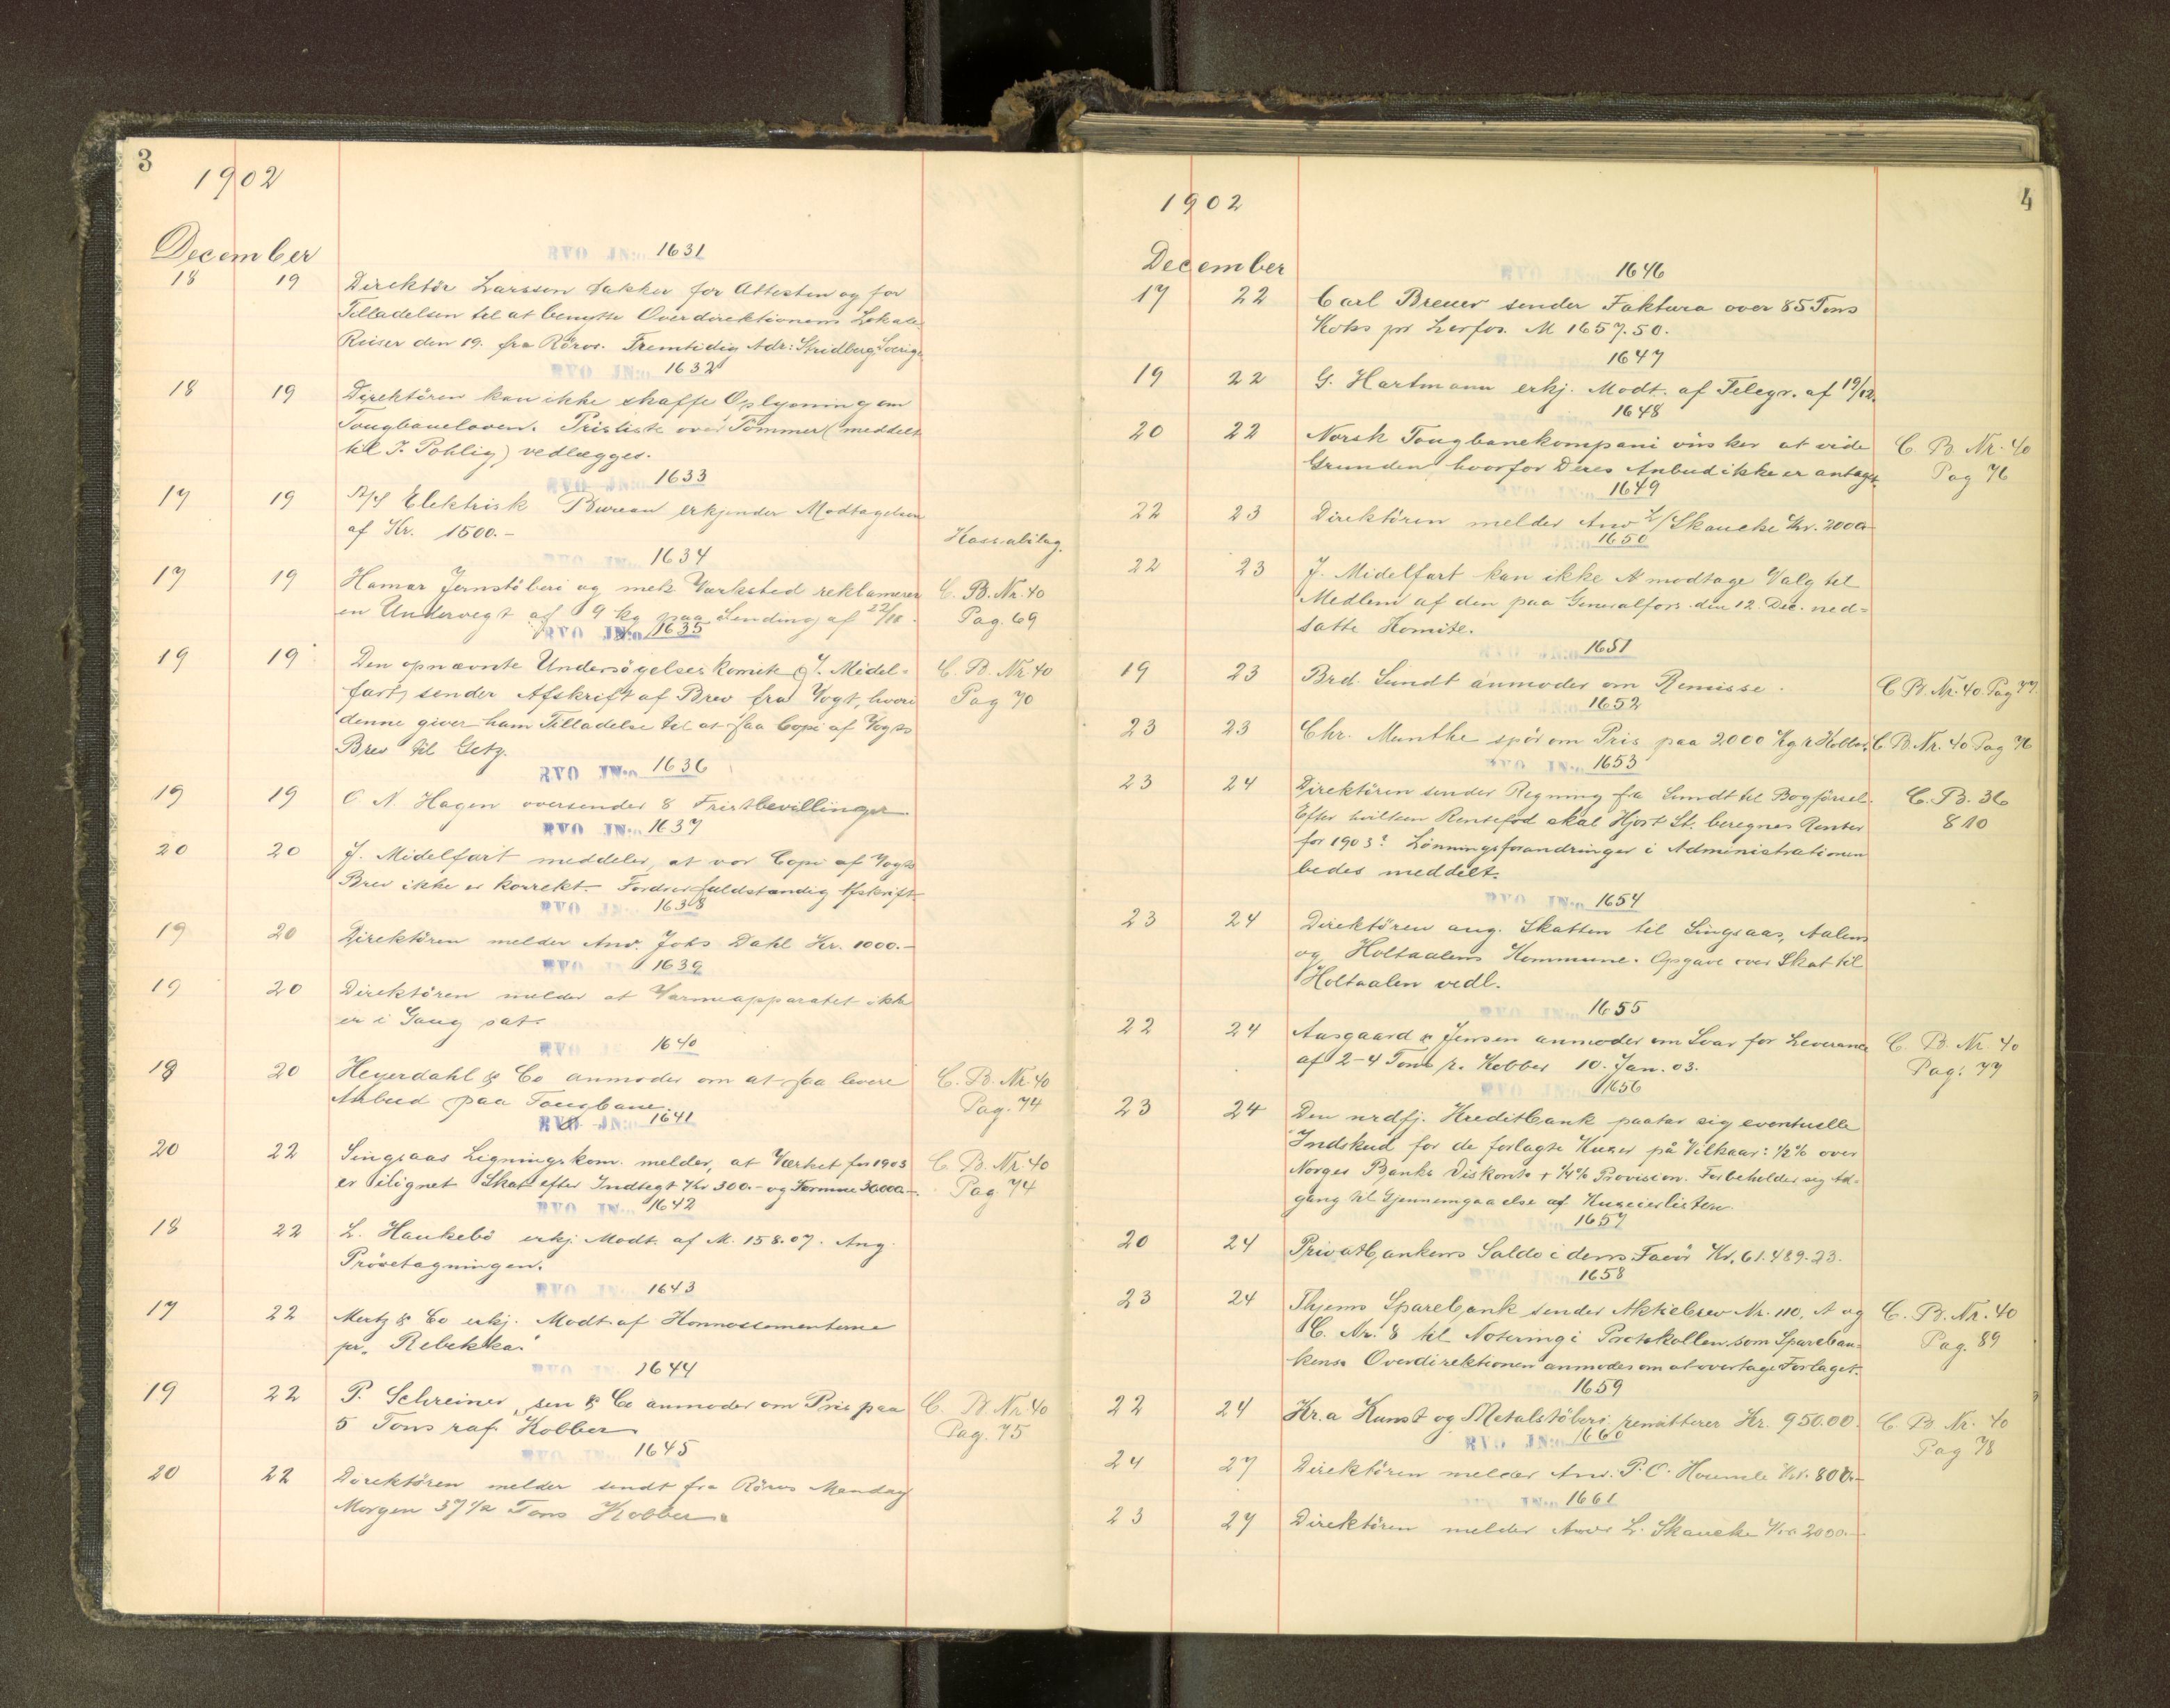 3
1902
December
RVO JN:o 1631
18 19 Direktör Larssen takker for Attesten og for
Tilladelsen til at benytte Overdirektionens Lokale.
Reiser den 19. fra Röros. Fremtidig Adr: Skidberg Sverige
RVO JN:o 1632
18 19 Direktören kan ikke skaffe Oplysning om
Taugbaneloven. Prisliste over Tömmer (meddelt
til J. Pohlig) vedlægges.
RVO JN:o 1633
17 19 A/S Elektrisk Bureau erkjender Modtagelsen
af Kr. 1500.- Kassabilag.
RVO JN:o 1634
17 19 Hamar Jernstöberi og mek Værksted reklamerer C. B. Nr. 40
en Undervegt af 9 kg paa Sending af 22/18. Pag. 69
RVO JN:o 1635
19 19 Den opnævnte Undersögelseskomite (J. Midel- C. B. Nr. 40
fart) sender Afskrift af Brev fra Vogt, hvori Pag 70
denne giver ham Tilladelse til at faa Copi af Vogts
Brev til Getz.
RVO JN:o 1636
19 19 O. N. Hagen oversender 8 Fristbevillinger.
RVO JN:o 1637
20 20 J. Midelfart meddeler, at vor Copi af Vogts
Brev ikke er korrekt. Fordrer fuldstændig Afskrift.
RVO JN:o 1638
19 20 Direktören melder Anv. Johs Dahl Kr. 1000.-
RVO JN:o 1639
19 20 Direktören melder at Varmeapparatet ikke
er i Gang sat.
RVO JN:o 1640
19 20 Heyerdahl & Co anmoder om at faa levere C. B. Nr. 40
Anbud paa Taugbane. Pag. 74
RVO JN:o 1641
20 22 Singsaas Ligningskom. melder, at Værket for 1903 C. B. Nr. 40
er ilignet Skat efter Indtægt Kr 300.- og Formue 30.000.-. Pag. 74
RVO JN:o 1642
18 22 L. Haukebö erkj. Modt. af M. 158.07. Ang.
Prövetagningen.
RVO JN:o 1643
17 22 Mertz & Co erkj. Modt. af Konnossementerne
pr. "Rebekka."
RVO JN:o 1644
19 22 P. Schreiner, sen & Co anmoder om Pris paa C. B. Nr 40
5 Tons raf. Kobber Pag. 75
RVO JN:o 1645
20 22 Direktören melder sendt fra Röros Mandag
Morgen 37 1/2 Tons Kobber.
4
1902
December
RVO JN:o 1646
17 22 Carl Breuer sender Faktura over 85 Tons
Koks pr Lerfos. M 1657.50.
RVO JN:o 1647
19 22 G. Hartmann erkj. Modt. af Telegr. af 19/12.
1648
20 22 Norsk Taugbanekompani önsker at vide C. B. Nr. 40
Grunden hvorfor Deres Anbud ikke er antaget. Pag 76
1649
22 23 Direktören melder Anv L/Skancke Kr. 2000.-
RVO JN:o 1650
22 23 J. Midelfart kan ikke modtage Valg til
Medlem af den paa Generalfors. den 12. Dec. ned-
satte Komite.
RVO JN:o 1651
19 23 Brd. Sundt anmoder om Remisse. C. B. Nr. 40 Pag 77.
RVO JN:o 1652
23 23 Chr. Munthe spör om Pris paa 2000 Kg r Kobber. C. B. Nr. 40 Pag 76
RVO JN:o 1653
23 24 Direktören sender Regning fra Sundt til Bogförsel. C. B. 36
Efter hvilken Rentefod skal Hjort St. beregnes Renter 810
for 1903? Lönningsforandringer i Administrationen
bedes meddelt.
RVO JN:o 1654
23 24 Direktören ang. Skatten til Singsaas, Aalens
og Holtaalens Kommune. Opgave over Skat til
Holtaalen vedl.
RVO JN:o 1655
22 24 Aasgaard & Jensen anmoder om Svar for Leverance C. B. Nr. 40
af 2-4 Tons r. Kobber 10. Jan. 03. Pag. 77
RVO JN:o 1656
23 24 Den nrdfj. Kreditbank paatar sig eventuelle
Indskud for de forlagte Kuxer på Vilkaar: 1/2 % over
Norges Banks Diskonto + 1/4 % Provision. Forbeholder sig Ad-
gang til Gjennemgaaelse af Kuxeierlisten.
1657
20 24 Privatbankens Saldo i dens Favör Kr. 61.489.23.
1658
23 24 Thjems Sparebank sender Aktiebrev Nr. 110, A og C. B. Nr. 40
C. Nr. 8 til Notering i Protokollen som Spareban- Pag. 89
kens. Overdirektionen anmodes om at overtage Forlaget.
1659
22 24 Kr.a Kunst og Metalstöberi remitterer Kr. 950.00. C. B. Nr. 40
RVO JN:o 1660 Pag 78
24 27 Direktören melder Anv. P. O. Houmle Kr. 800.-
JN:o 1661
23 27 Direktören melder Anv. L. Skancke Kr. 2000.-